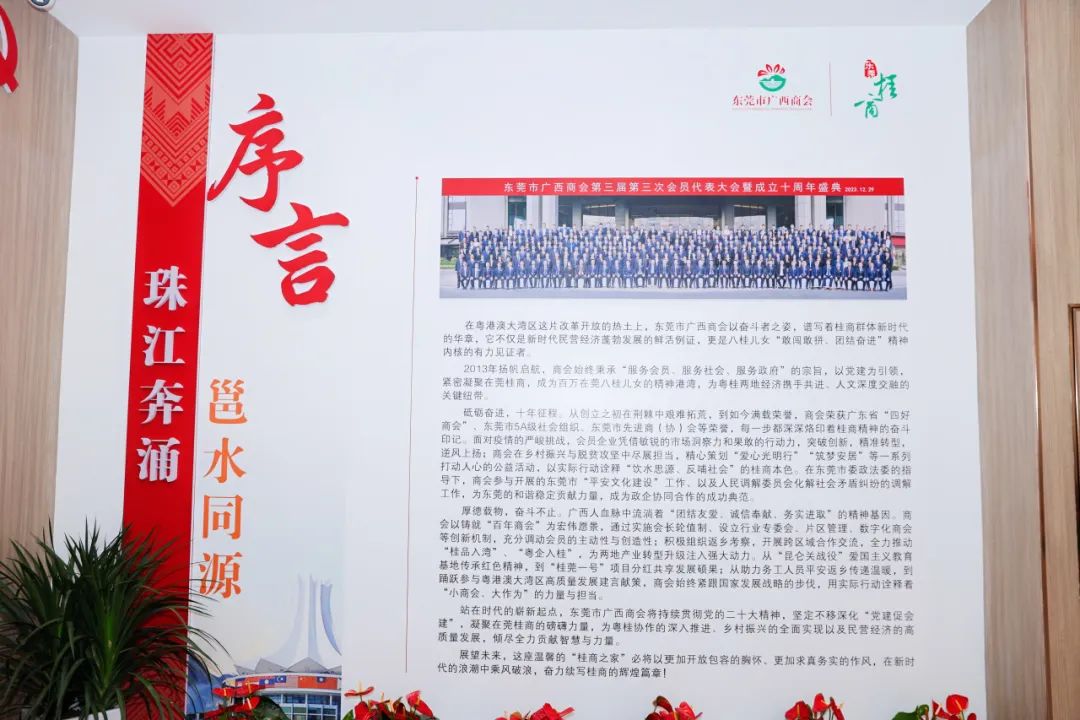 序言
珠江奔涌
邕水同源
东莞市广西商会
东莞
桂商
东莞市广西商会第三届第三次会员代表大会暨成立十周年盛典 2023.12.29
在粤港澳大湾区这片改革开放的热土上，东莞市广西商会以奋斗者之姿，谱写着桂商群体新时代
的华章，它不仅是新时代民营经济蓬勃发展的鲜活例证，更是八桂儿女“敢闯敢拼、团结奋进”精神
内核的有力见证者。
2013年扬帆启航，商会始终秉承“服务会员、服务社会、服务政府”的宗旨，以党建为引领，
紧密凝聚在莞桂商，成为百万在莞八桂儿女的精神港湾，为粤桂两地经济携手共进、人文深度交融的
关键纽带。
砥砺奋进，十年征程。从创立之初在荆棘中艰难拓荒，到如今满载荣誉，商会荣获广东省“四好
商会”、东莞市5A级社会组织、东莞市先进商（协）会等荣誉，每一步都深深烙印着桂商精神的奋斗
印记。面对疫情的严峻挑战，会员企业凭借敏锐的市场洞察力和果敢的行动力，突破创新，精准转型，
逆风上扬；商会在乡村振兴与脱贫攻坚中尽展担当，精心策划“爱心光明行”“筑梦安居”等一系列
打动人心的公益活动，以实际行动诠释“饮水思源、反哺社会”的桂商本色。在东莞市委政法委的指
导下，商会参与开展的东莞市“平安文化建设”工作、以及人民调解委员会化解社会矛盾纠纷的调解
工作，为东莞的和谐稳定贡献力量，成为政企协同合作的成功典范。
厚德载物，奋斗不止。广西人血脉中流淌着“团结友爱、诚信奉献、务实进取”的精神基因。商
会以铸就“百年商会”为宏伟愿景，通过实施会长轮值制、设立行业专委会、片区管理、数字化商会
等创新机制，充分调动会员的主动性与创造性；积极组织返乡考察，开展跨区域合作交流，全力推动
“桂品入湾”、“粤企入桂”，为两地产业转型升级注入强大动力。从“昆仑关战役”爱国主义教育
基地传承红色精神，到“桂莞一号”项目分红共享发展硕果；从助力务工人员平安返乡传递温暖，到
踊跃参与粤港澳大湾区高质量发展建言献策，商会始终紧跟国家发展战略的步伐，用实际行动诠释着
“小商会、大作为”的力量与担当。
站在时代的崭新起点，东莞市广西商会将持续贯彻党的二十大精神，坚定不移深化“党建促会
建”，凝聚在莞桂商的磅礴力量，为粤桂协作的深入推进、乡村振兴的全面实现以及民营经济的高
质量发展，倾尽全力贡献智慧与力量。
展望未来，这座温馨的“桂商之家”必将以更加开放包容的胸怀、更加求真务实的作风，在新时
代的浪潮中乘风破浪，奋力续写桂商的辉煌篇章！